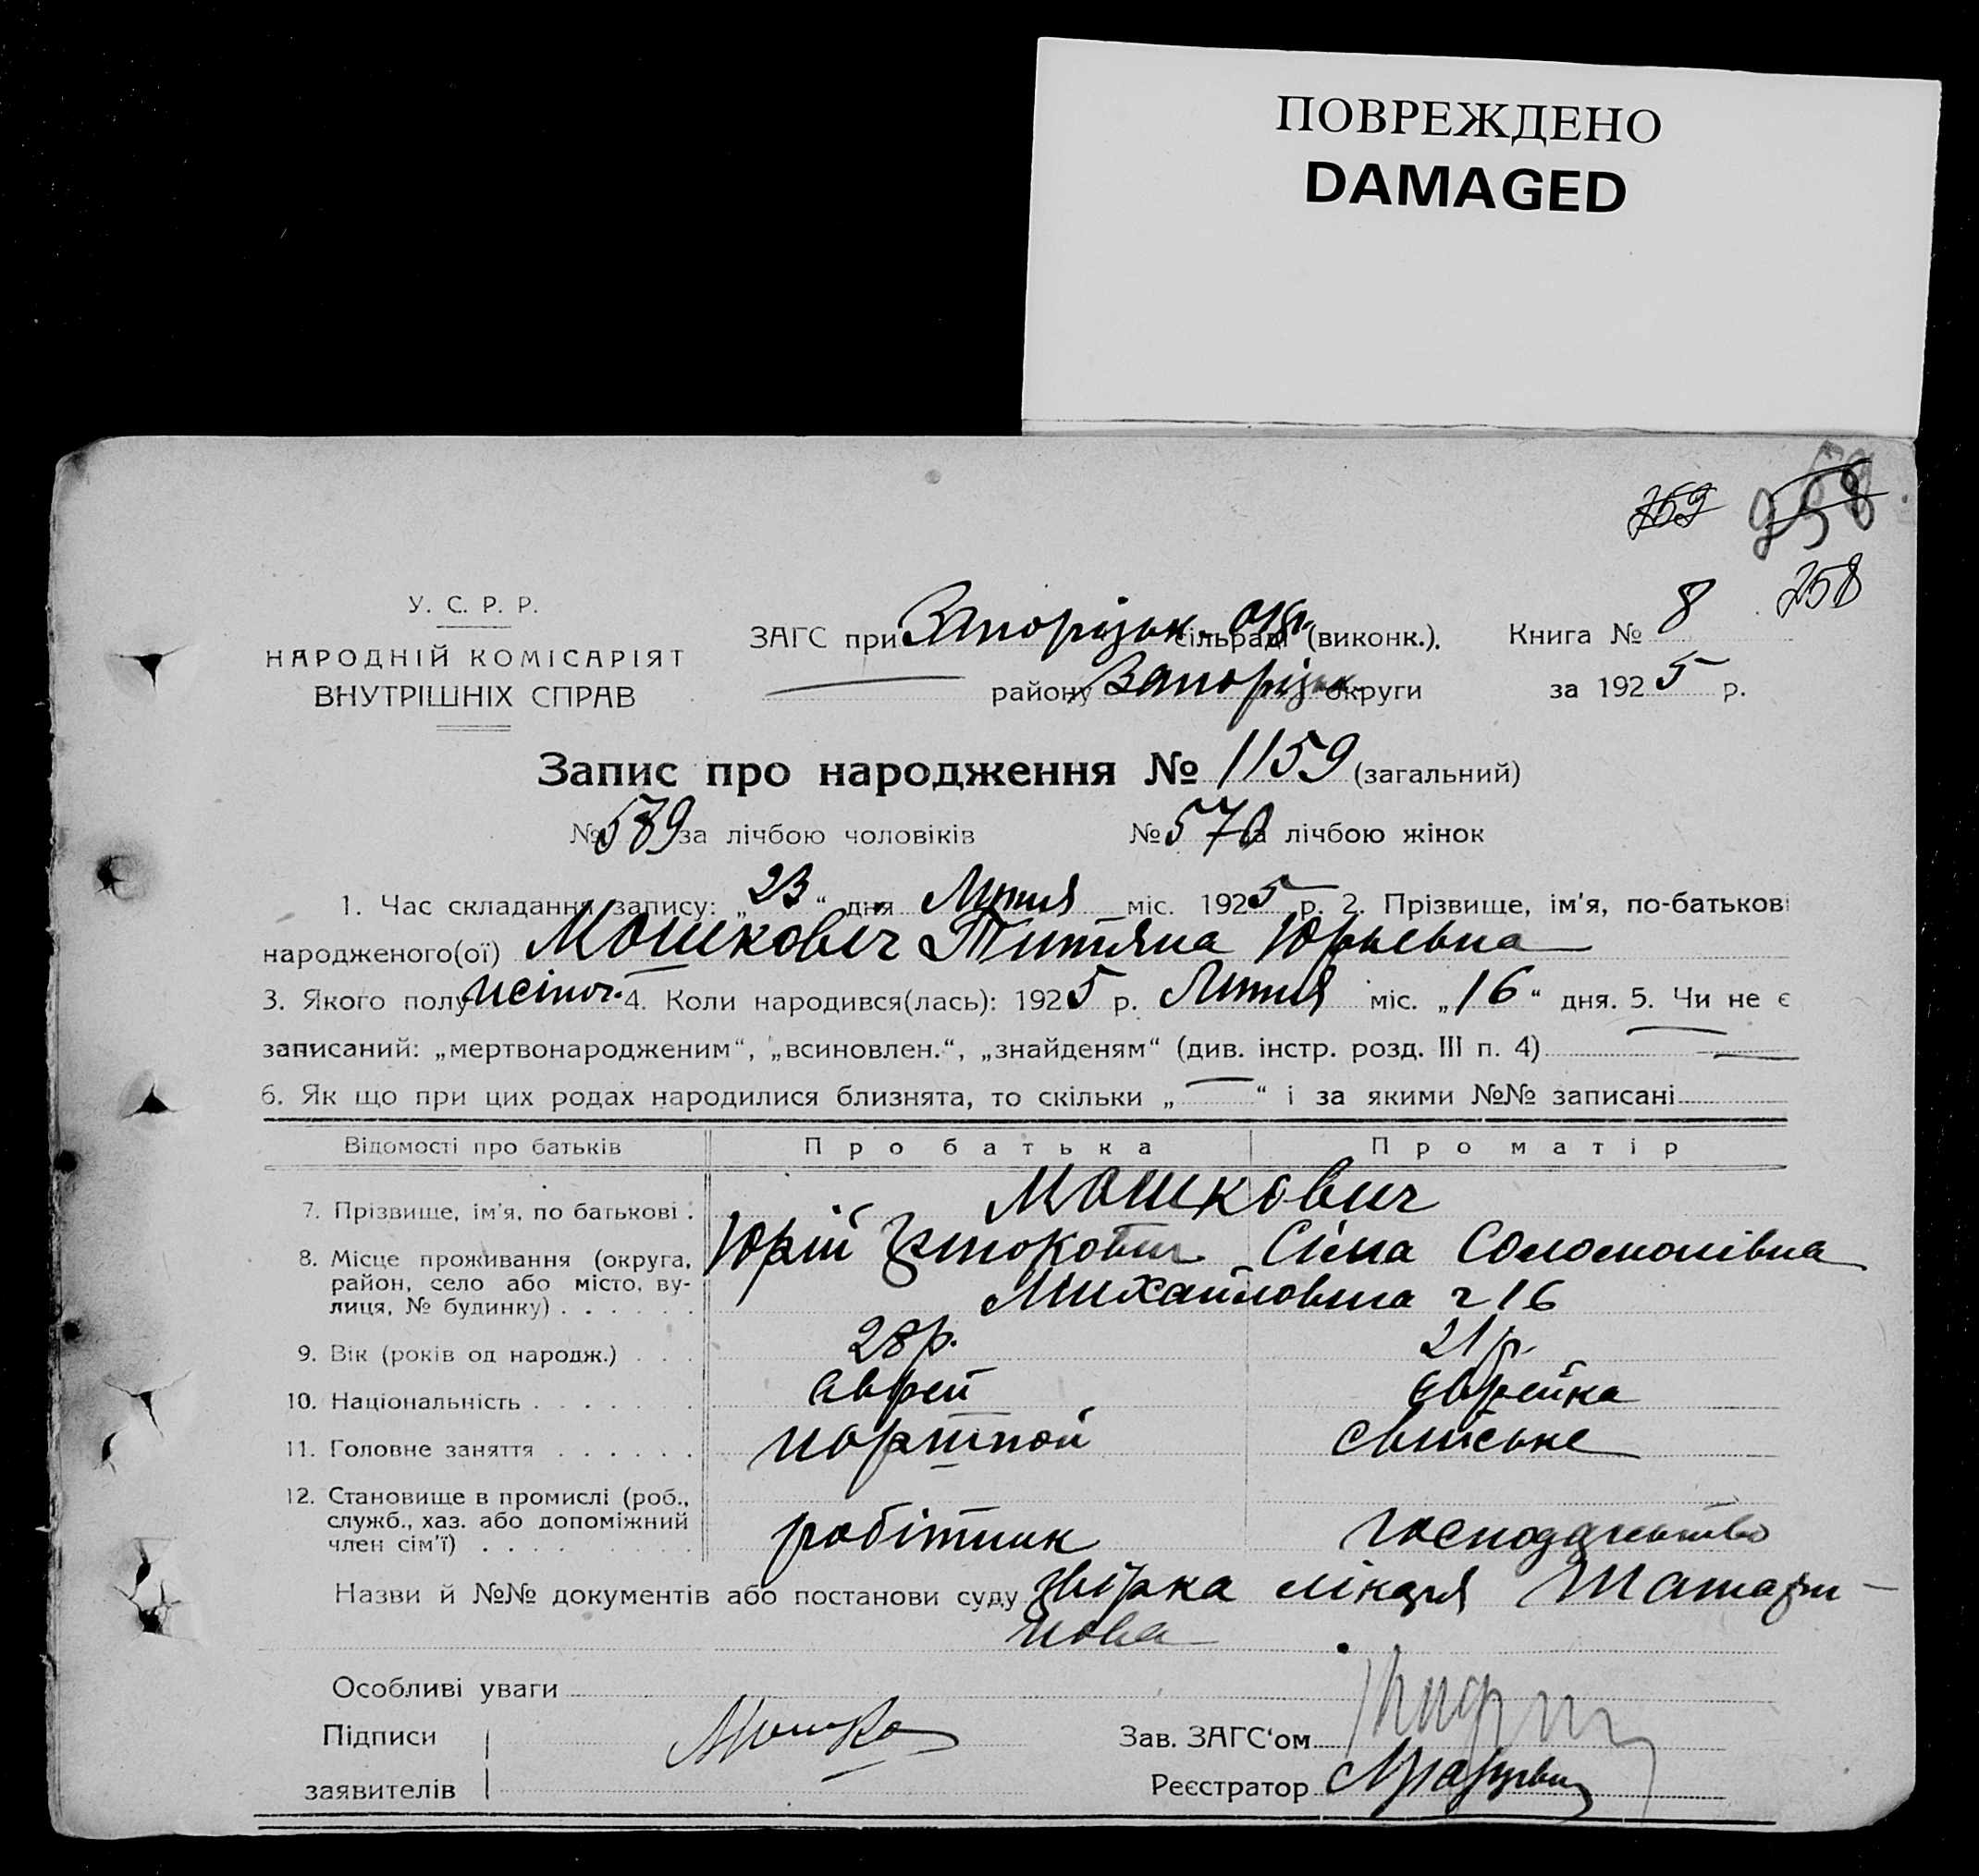 ПОВРЕЖДЕНО
DAMAGED
759 958
258
У. С. Р. Р.
НАРОДНІЙ КОМІСАРІЯТ
ВНУТРІШНІХ СПРАВ
ЗАГС при Запорізьк. окр. сільраді (виконк.). Книга № 8
району Запорізьк. округи за 1925 р.
Запис про народження № 1159 (загальний)
№ 589 за лічбою чоловіків № 570 за лічбою жінок
1. Час складання запису: „23“ дня Лютня міс. 1925 р. 2. Прізвище, ім'я, по-батькові
народженого(ої) Мошкович Татяна Юрьевна
3. Якого полу жіноч. 4. Коли народився(лась): 1925 р. Лютня міс. „16“ дня. 5. Чи не є
записаний: „мертвонародженим“, „всиновлен.“, „знайденям“ (див. інстр. розд. III п. 4)
6. Як що при цих родах народилися близнята, то скільки „—“ і за якими №№ записані
Відомості про батьків Про батька Про матір
7. Прізвище, ім'я, по батькові : Мошкович
Юрій Сіма Соломонівна
8. Місце проживання (округа, район, село або місто, вулиця, № будинку) . . . . . . Михайловська 16
9. Вік (років од народж.) . . . 28 р. 21 р.
10. Національність . . . . . . . єврей єврейка
11. Головне заняття . . . . . . портной свійське
12. Становище в промислі (роб.,
служб., хаз. або допоміжний
член сім'ї) . . . . . . . . . робітник господарство
Назви й №№ документів або постанови суду звірка лікаря Татари-
нова
Особливі уваги
Підписи Зав. ЗАГС'ом
заявителів Реєстратор